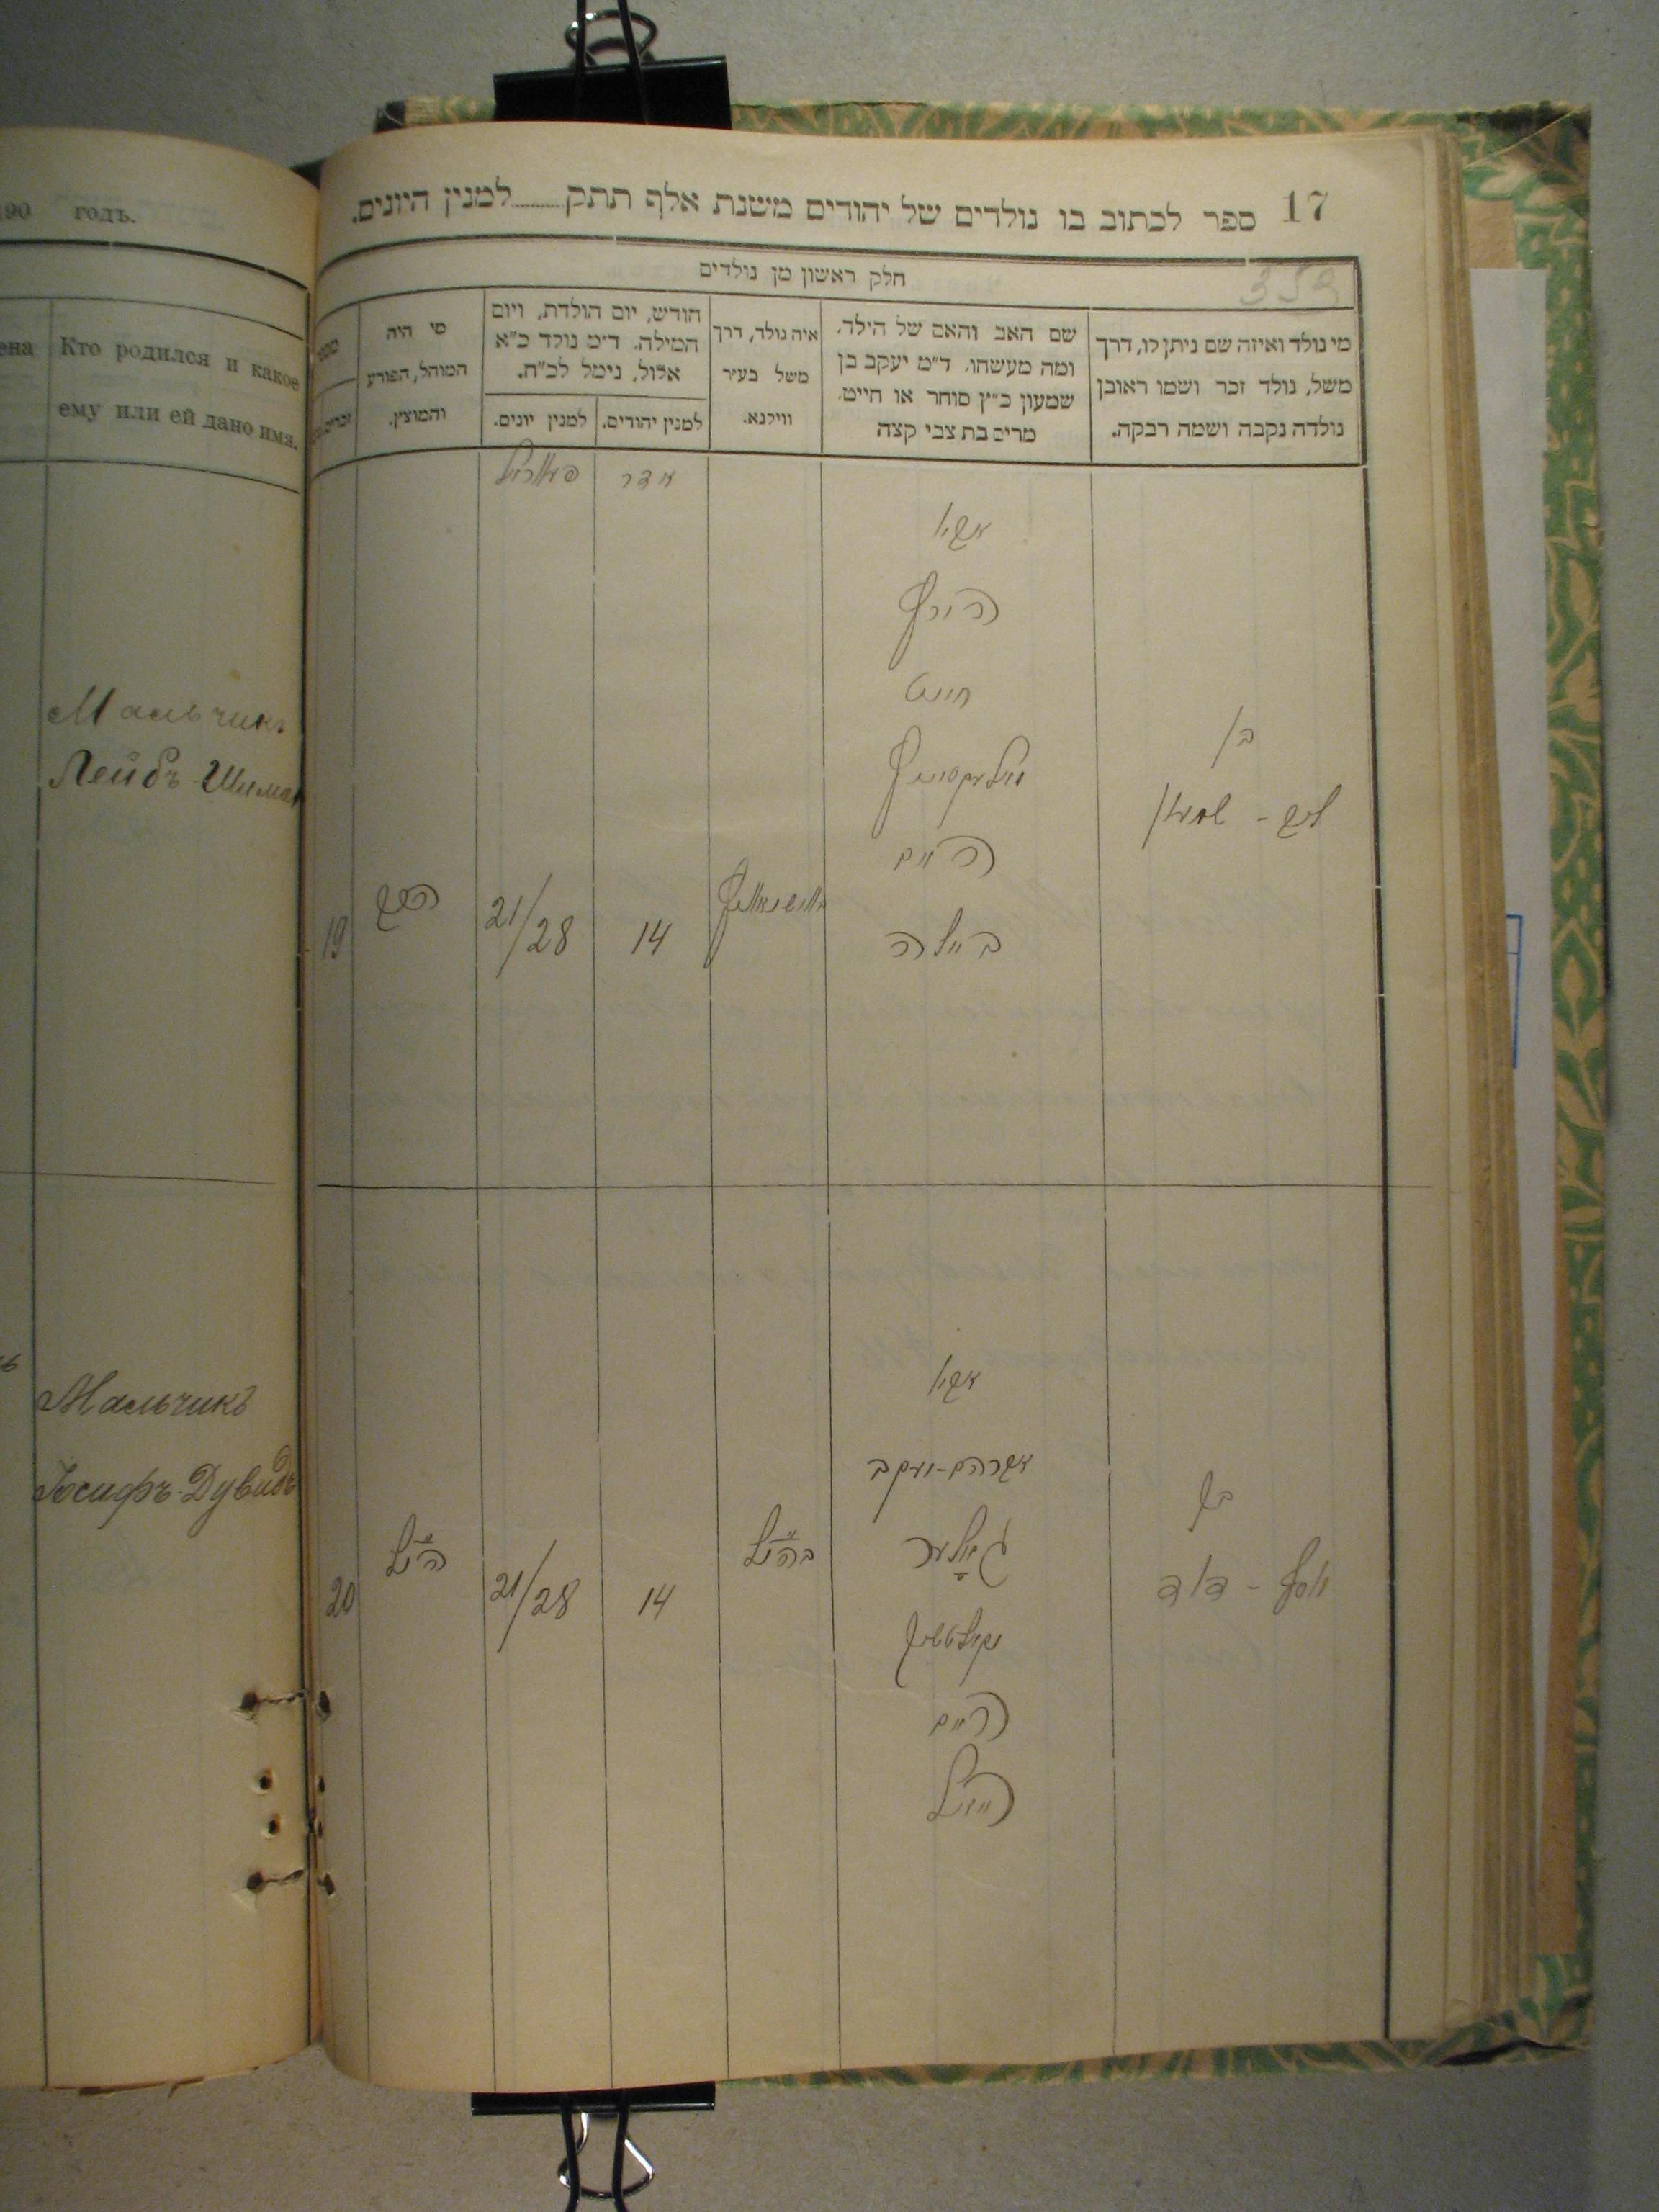 190 годъ.
ена
Кто родился и какое
ему или ей дано имя.
Мальчикъ
Лейбъ-Шиман
Мальчикъ
Іосифъ-Дувидъ
17
ספר לכתוב בו נולדים של יהודים משנת אלף תתק למנין היונים.
359
חלק ראשון מן נולדים
מי נולד ואיזה שם ניתן לו, דרך
משל, נולד זכר ושמו ראובן
נולדה נקבה ושמה רבקה.
שם האב והאם של הילד,
ומה מעשהו. ד״מ יעקב בן
שמעון כ״ץ סוחר או חייט,
מרים בת צבי קצה
איה נולד, דרך
משל בעיר
ווילנא.
חודש, יום הולדת, ויום
המילה. ד״מ נולד כ״א
אלול, נימל לכ״ח.
למנין יהודים.
למנין יונים.
מי היה
המוהל, הפורע
והמוצץ.
מספר
אדר
פעוואריל
אביו
הירש
חייט
האם
ביילה
בן
ליב - שמעון
14
21/28
הרב
19
אביו
אברהם-יעקב
האם
היינדל
בן
יוסף - דוד
בה״נל
14
21/28
ה״נל
20